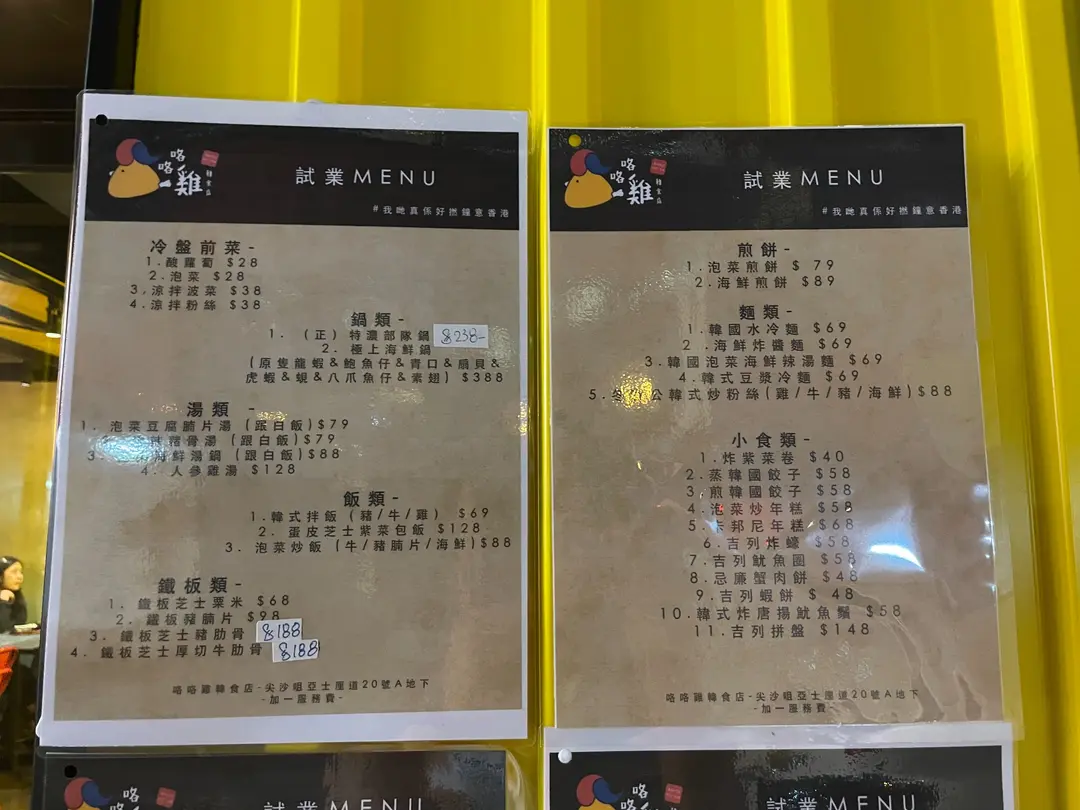 咯
咯
雞
韓食店
試業MENU
#我哋真係好撚鐘意香港
冷盤前菜-
1.酸蘿蔔 $28
2.泡菜 $28
3,涼拌波菜 $38
4.涼拌粉絲 $38
鍋類-
1. (正) 特濃部隊鍋 $238-
2. 極上海鮮鍋
(原隻龍蝦&鮑魚仔&青口&扇貝&
虎蝦&蜆&八爪魚仔&素翅) $388
湯類 -
1. 泡菜豆腐腩片湯 (跟白飯)$79
豬骨湯 (跟白飯)$79
3. 海鮮湯鍋 (跟白飯)$88
4. 人參雞湯 $128
飯類-
1.韓式拌飯 (豬/牛/雞) $69
2. 蛋皮芝士紫菜包飯 $128
3. 泡菜炒飯 (牛/豬腩片/海鮮)$88
鐵板類-
1. 鐵板芝士粟米 $68
2. 鐵板豬腩片 $98
3. 鐵板芝士豬肋骨 $188
4. 鐵板芝士厚切牛肋骨 $188
咯咯雞韓食店-尖沙咀亞士厘道20號A地下
-加一服務費-
咯
咯
雞
韓食店
試業MENU
#我哋真係好撚鐘意香港
煎餅-
1.泡菜煎餅 $ 79
2.海鮮煎餅 $89
麵類-
1.韓國水冷麵 $69
2. .海鮮炸醬麵 $69
3.韓國泡菜海鮮辣湯麵 $69
4.韓式豆漿冷麵 $69
5. 公韓式炒粉絲(雞/牛/豬/海鮮)$88
小食類-
1.炸紫菜卷 $40
2.蒸韓國餃子 $58
3.煎韓國餃子 $58
4.泡菜炒年糕 $58
5.卡邦尼年糕 $68
6.吉列炸蠔 $58
7.吉列魷魚圈 $58
8.忌廉蟹肉餅 $48
9.吉列蝦餅 $ 48
10.韓式炸唐揚魷魚鬚 $58
11.吉列拼盤 $148
咯咯雞韓食店-尖沙咀亞士厘道20號A地下
-加一服務費-
咯
咯
試業MENU
咯
咯
試業MENU